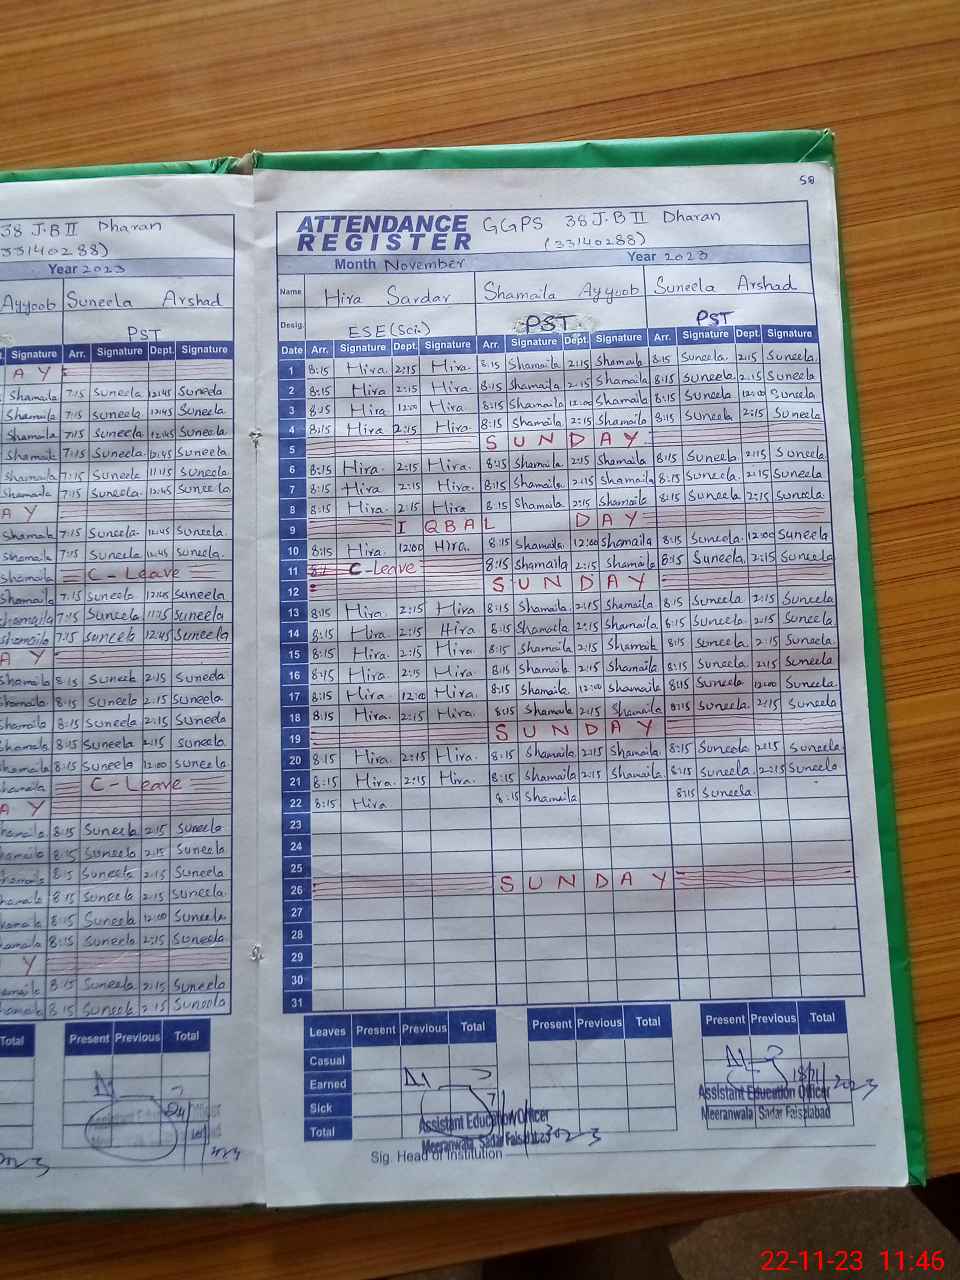 38 J.B II Dharan
(33140288)
Year 2023
Ayyoob Suneela Arshad
PST
Signature Arr. Signature Dept. Signature
A Y
Shamaila 7:15 Suneela 12:45 Suneela
Shamaila 7:15 Suneela 12:45 Suneela
Shamaila 7:15 Suneela 12:45 Suneela
Shamaila 7:15 Suneela 12:45 Suneela
Shamaila 7:15 Suneela 11:15 Suneela
Shamaila 7:15 Suneela 12:45 Suneela
A Y
Shamaila 7:15 Suneela 12:45 Suneela.
Shamaila 7:15 Suneela 12:45 Suneela.
Shamaila C-Leave
Shamaila 7:15 Suneela 12:45 Suneela
Shamaila 7:15 Suneela 11:15 Suneela
Shamaila 7:15 Suneela 12:45 Suneela
A Y
Shamaila 8:15 Suneela 2:15 Suneela
Shamaila 8:15 Suneela 2:15 Suneela
Shamaila 8:15 Suneela 2:15 Suneela
Shamaila 8:15 Suneela 2:15 Suneela
Shamaila 8:15 Suneela 12:00 Suneela
Shamaila C-Leave
A Y
8:15 Suneela 2:15 Suneela
8:15 Suneela 2:15 Suneela
8:15 Suneela 2:15 Suneela
8:15 Suneela 2:15 Suneela
8:15 Suneela 12:00 Suneela
8:15 Suneela 2:15 Suneela
Y
8:15 Suneela 2:15 Suneela
8:15 Suneela 2:15 Suneela
Total Present Previous Total
58
ATTENDANCE REGISTER
GGPS 38 J.B II Dharan
(33140288)
Month November Year 2023
Name Hira Sardar Shamaila Ayyoob Suneela Arshad
Desig. ESE (Sci.) PST PST
Date Arr. Signature Dept. Signature Arr. Signature Dept. Signature Arr. Signature Dept. Signature
1 8:15 Hira. 2:15 Hira. 8:15 Shamaila 2:15 Shamaila 8:15 Suneela. 2:15 Suneela.
2 8:15 Hira 2:15 Hira 8:15 Shamaila 2:15 Shamaila 8:15 Suneela 2:15 Suneela
3 8:15 Hira 12:00 Hira 8:15 Shamaila 12:00 Shamaila 8:15 Suneela 12:00 Suneela
4 8:15 Hira 2:15 Hira 8:15 Shamaila 2:15 Shamaila 8:15 Suneela 2:15 Suneela
5 SUNDAY
6 8:15 Hira. 2:15 Hira. 8:15 Shamaila 2:15 Shamaila 8:15 Suneela. 2:15 Suneela
7 8:15 Hira 2:15 Hira. 8:15 Shamaila 2:15 Shamaila 8:15 Suneela. 2:15 Suneela
8 8:15 Hira 2:15 Hira 8:15 Shamaila 2:15 Shamaila 8:15 Suneela 2:15 Suneela.
9 IQBAL DAY
10 8:15 Hira. 12:00 Hira. 8:15 Shamaila. 12:00 Shamaila 8:15 Suneela. 12:00 Suneela
11 C-Leave 8:15 Shamaila 2:15 Shamaila 8:15 Suneela, 2:15 Suneela
12 SUNDAY
13 8:15 Hira 2:15 Hira 8:15 Shamaila. 2:15 Shamaila. 8:15 Suneela 2:15 Suneela
14 8:15 Hira. 2:15 Hira 8:15 Shamaila 2:15 Shamaila. 8:15 Suneela. 2:15 Suneela.
15 8:15 Hira 2:15 Hira. 8:15 Shamaila 2:15 Shamaila 8:15 Suneela. 2:15 Suneela.
16 8:15 Hira. 2:15 Hira. 8:15 Shamaila 2:15 Shamaila 8:15 Suneela. 2:15 Suneela.
17 8:15 Hira. 12:00 Hira. 8:15 Shamaila. 12:00 Shamaila 8:15 Suneela 12:00 Suneela.
18 8:15 Hira. 2:15 Hira. 8:15 Shamaila 2:15 Shamaila 8:15 Suneela. 2:15 Suneela
19 SUNDAY
20 8:15 Hira. 2:15 Hira. 8:15 Shamaila 2:15 Shamaila 8:15 Suneela 2:15 Suneela.
21 8:15 Hira. 2:15 Hira. 8:15 Shamaila 2:15 Shamaila. 8:15 Suneela. 2:15 Suneela
22 8:15 Hira 8:15 Shamaila 8:15 Suneela.
23
24
25
26 SUNDAY
27
28
29
30
31
Leaves Present Previous Total Present Previous Total Present Previous Total
Casual
Earned
Sick
Total
Assistant Education Officer
Meeranwala, Sadar Faisalabad
Assistant Education Officer
Meeranwala, Sadar Faisalabad
Sig. Head of Institution
22-11-23 11:46